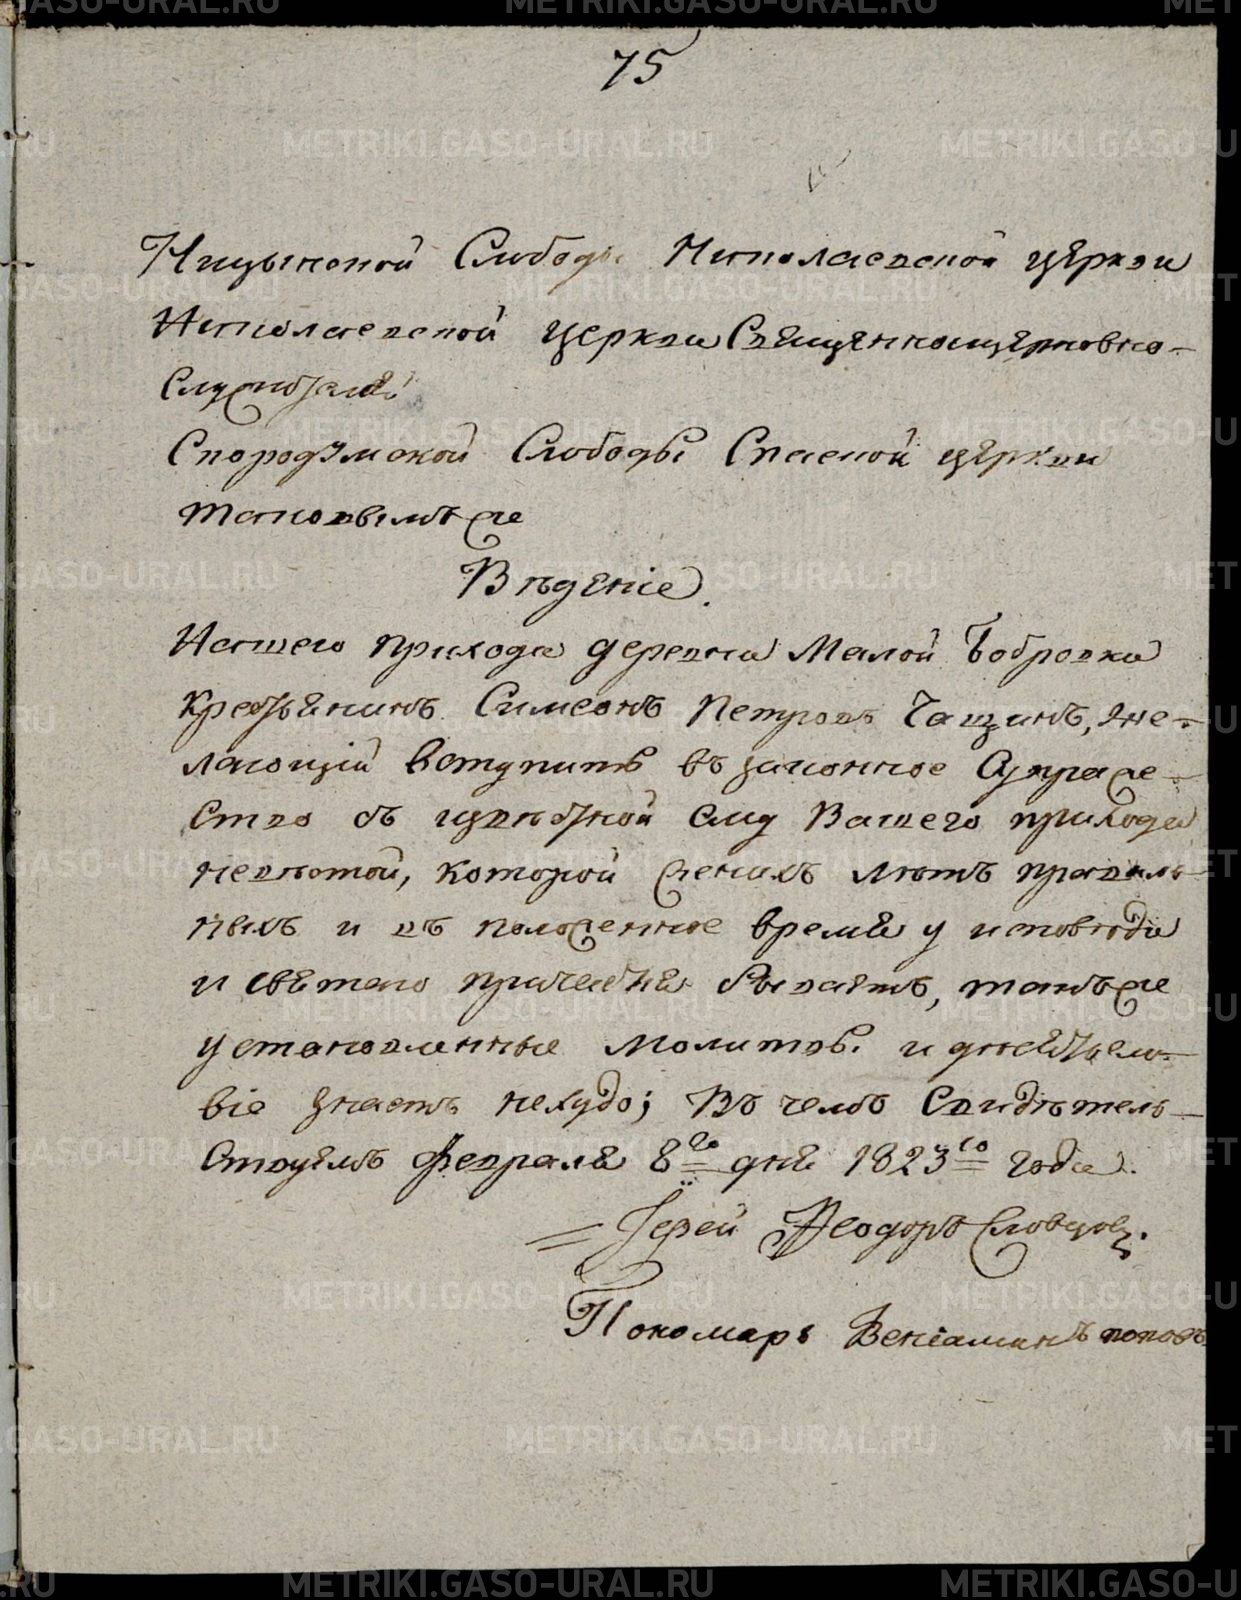 75
Ницынской Слободы Николаевской церкви
Николаевской церкви Священноицерковно-
служителямъ
Скородумской Слободы Спасской церкви
таковымъ же
Вѣдѣніе.
Нашего прихода деревни Малой Бобровки
крестьянинъ Симеонъ Петровъ Чащинъ, же-
лающій вступить въ законное Супруже-
ство съ изъ
Вашего прихода
невѣстой, которой женихъ лѣтъ правиль-
ныхъ и въ положенное время у исповѣди
и святаго причастія бываетъ, также
установленные молитвы и
знаетъ нехудо; Въ чемъ Свидѣтель-
ствуемъ Февраля 8го дня 1823го года.
Іерей Ѳеодоръ Словцовъ.
Пономарь Веніаминъ поповъ
METRIKI.GASO-URAL.RU